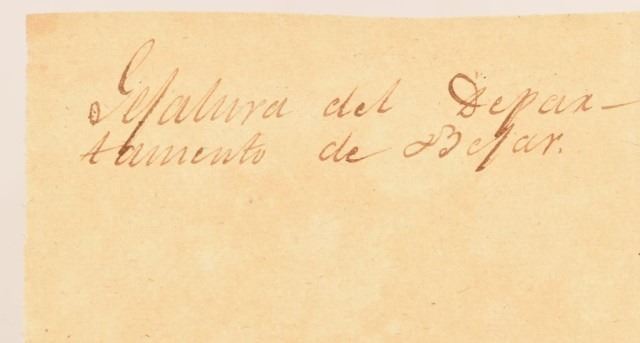 Gefatura del Depar-
tamento de Bejar.